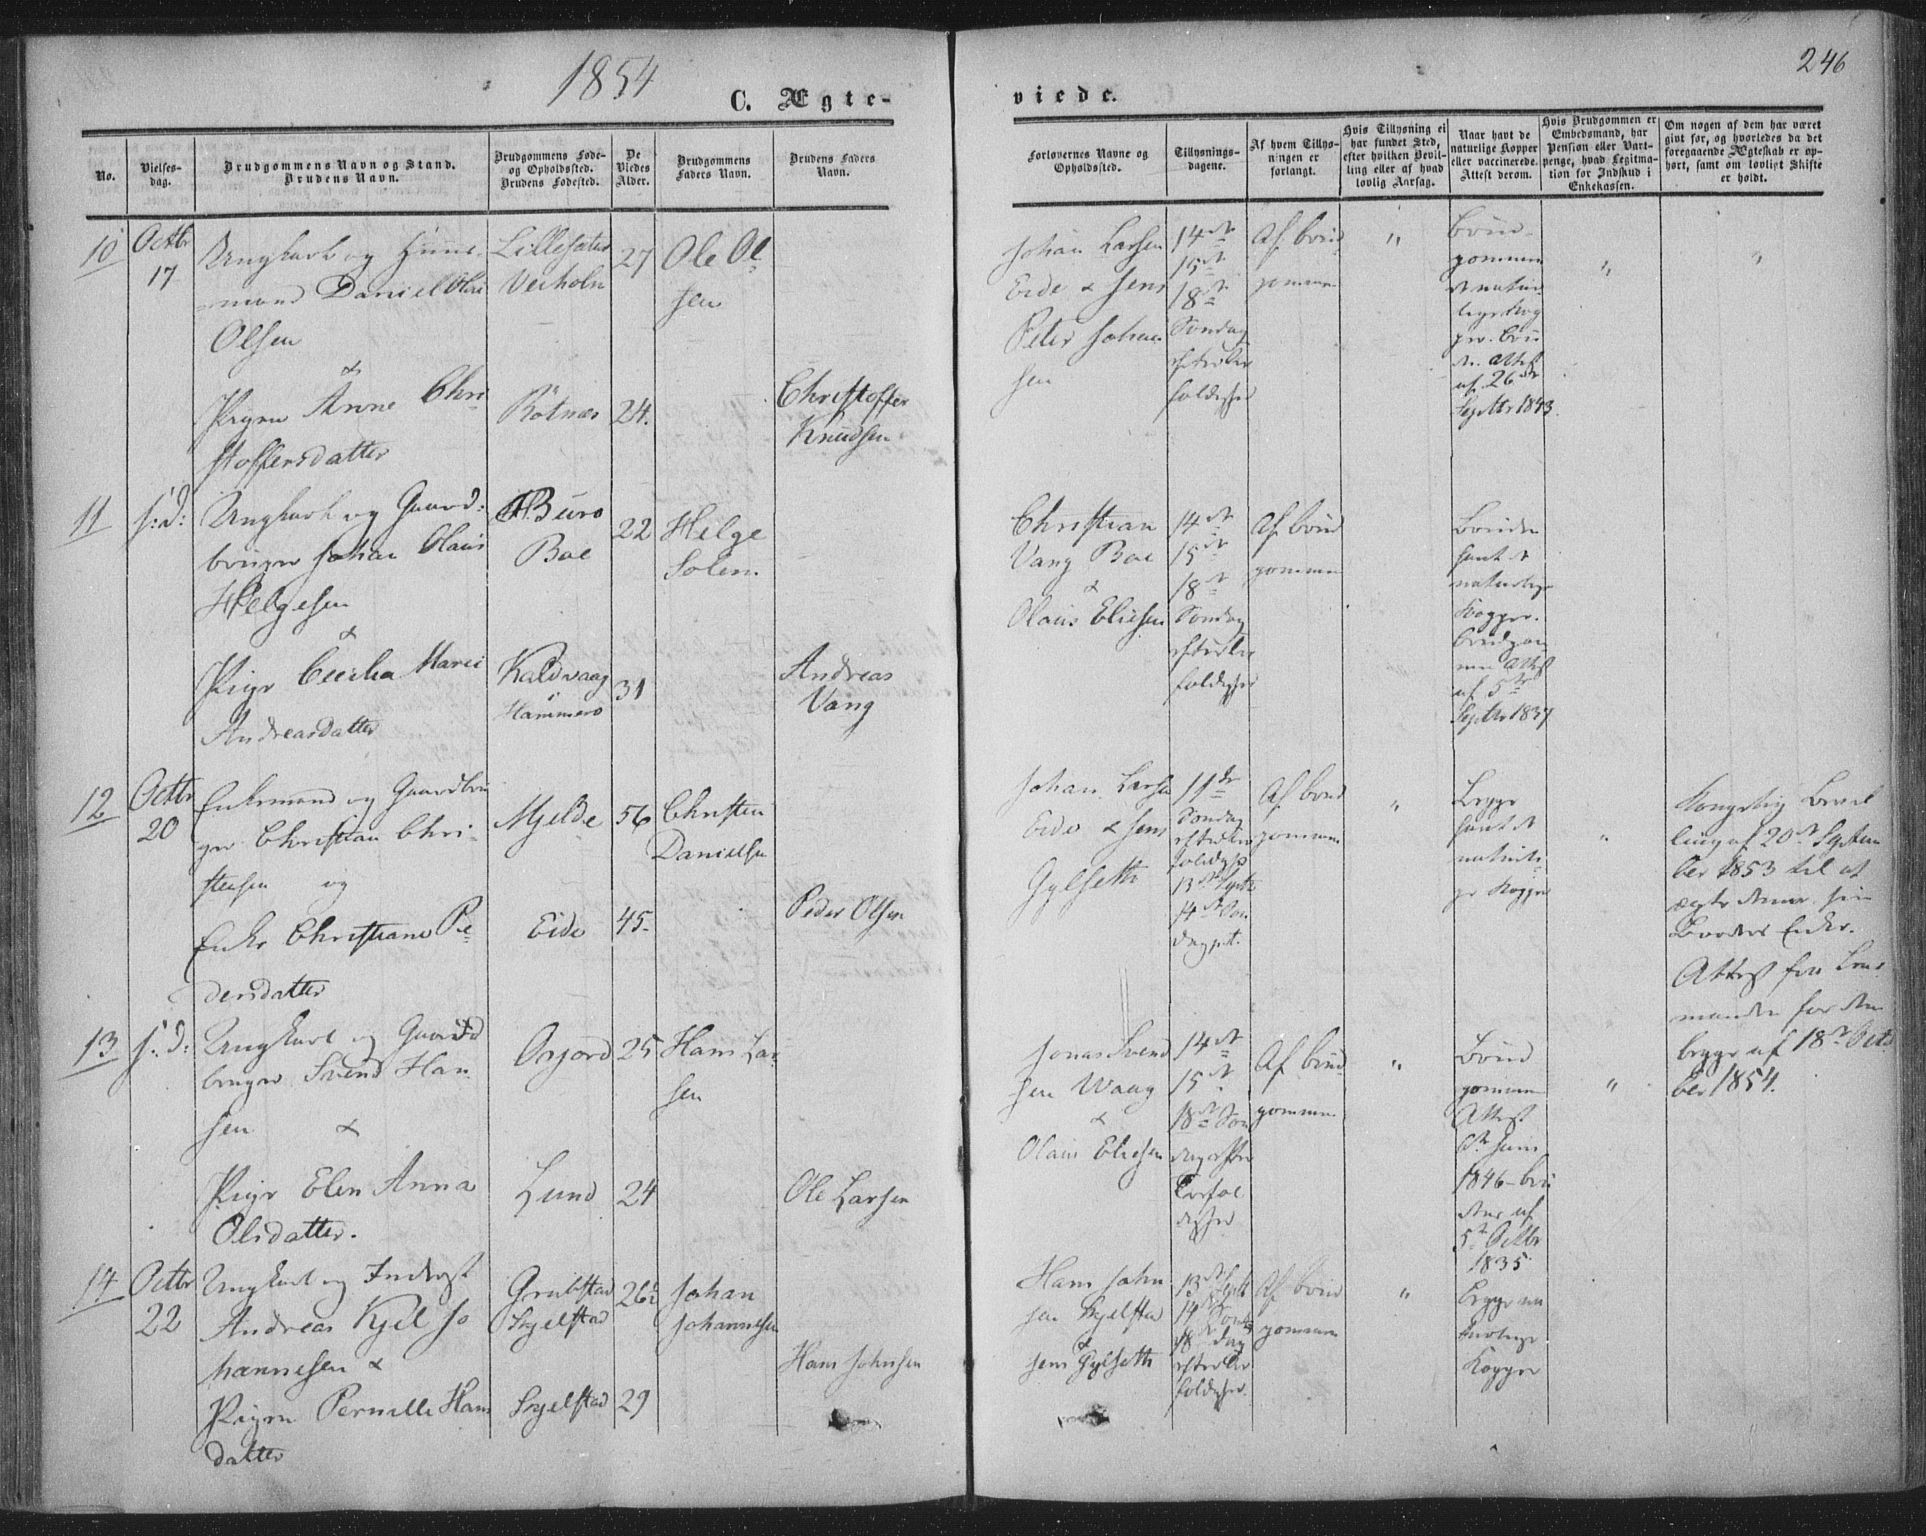 1854
246
C. Ægte-
viede.
No.
Vielses-
dag.
Brudgommens Navn og Stand.
Brudens Navn.
Brudgommens Føde-
og Opholdssted.
Brudens Fødested.
De
Viedes
Alder.
Brudgommens
Faders Navn.
Brudens Faders
Navn.
Forlovernes Navne og
Opholdssted.
Tillysnings-
dagene.
Af hvem Tillys-
ningen er
forlangt.
Hvis Tillysning ei
har fundet Sted,
efter hvilken Bevil-
ling eller af hvad
lovlig Aarsag.
Naar havt de
naturlige Kopper
eller vaccinerede.
Attest derom.
Hvis Brudgommen er
Embedsmand, har
Pension eller Vart-
penge, hvad Legitima-
tion for Indskud i
Enkekassen.
Om nogen af dem har været
gift før, og hvorledes da det
foregaaende Ægteskab er op-
hørt, samt om lovligt Skifte
er holdt.
10
Octbr
17
Ungkarl og Huus-
mand Daniel
Olsen
&
Pigen Anne Chri
stoffersdatter
Lillesæter
Veiholm
27
Ole Ol
sen
24.
Christoffer
Knudsen
Johan Larsen
Eide & Jens
Peter Johan
sen
14de
15de
18de
Søndag
efter Tre
foldighed
Af Brud
gommen
"
Brud-
gommen
de natur-
lige Kop
per. Bru
den Attest
af 26de
Septbr 1843.
"
"
11
s: d:
Ungkarl og Gaard:
bruger Johan Olaus
Helgesen
&
Pige Cecilia Marie
Andreasdatter
Buro
Boe
Kaldvaag
Hammerø
22
31
Helge
Solem
Andreas
Vang
Christian
Vang Boe
&
Olaus Eliesen
14de
15de
18de
Søndag
efter Tre
foldighed
Af Brud
gommen
Bruden
havt de
naturlige
Kopper.
Brudgom
men Attest
af 5te
Septbr 1837
12
Octbr
20
Enkemand og Gaardbru
ger Christian Chri-
stensen og
Enke Christiane Pe
dersdatter
Mjelde
Eide
56
45
Christen
Danielsen
Peder Olsen
Johan Larsen
Eide & Jens
Gylseth
11te
Søndag
efter Tre
foldigh
13de Septbr
14de Søn
dag
Af Brud
gommen
"
Begge
havt de
naturli
ge Kopper
"
Kongelig Bevil
ling af 20de Septem
ber 1853 til at
ægte denne sin
Broders Enke.
Attest fra Lens
manden for den
begge af 18de Octo
ber 1854.
13
s: d:
Ungkarl og Gaard
bruger Svend Han
sen &
Pige Elen Anna
Olsdatter.
Lund
25
24
Hans Lar
sen
Ole Larsen
Jonas Svend
sen Waag
&
Olaus Eliesen
14de
15de
18de Søn
dag efter
Trefol
dighed
Af Brud
gommen
"
Brud
gommen
Attest
Juni
1846 - Bru
dens af
5te Octbr
1835
"
14
Octbr
22
Ungkarl og Inderst
Andreas Kjel Jo
hannesen &
Pigen Pernille Hans
datter
Skjelstad
Skjelstad
26½
29
Johan
Johannesen
Hans Johnsen
Hans John
sen Skjelstad
&
Jens Gylseth
13de Septbr
14de Sønd
18de dag
efter Tre
foldighed.
Af Brud
gommen
"
Begge na
turlige
Kopper